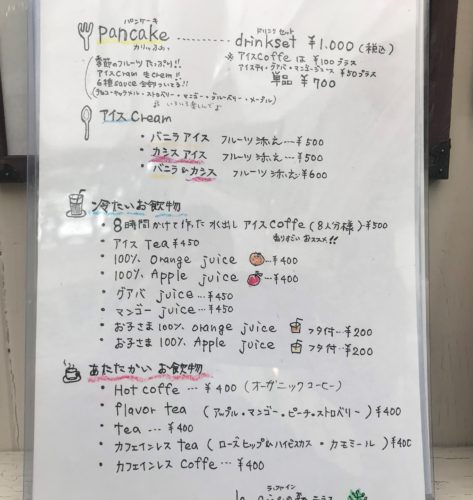 パンケーキ
pancake ............ drinkset ¥1,000 (税込)
ドリンク セット
カリッふわっ
※ アイスCoffe は ¥100プラス
アイスティ・グアバ・マンゴージュース ¥50プラス
単品 ¥700
季節のフルーツ たっぷり!!
アイスCram 生crem!!
(チョコ・キャラメル・ストロベリー・マンゴー・ブルーベリー・メープル)
アイス Cream
・バニラアイス フルーツ添え…¥500
・カシスアイス フルーツ添え…¥500
・バニラ&カシス フルーツ添え…¥600
冷たいお飲物
・8時間かけて作った 水出し アイスCoffe (8人分様) ¥500
おススメ!!
・アイス Tea ¥450
・100% Orange juice …¥400
・100% Apple juice …¥400
・グアバ juice…¥450
・マンゴー juice…¥450
・お子さま100% orange juice フタ付…¥200
・お子さま 100% Apple juice フタ付…¥200
あたたかい お飲物
・Hot Coffe … ¥400 (オーガニックコーヒー)
・flavor tea (アップル・マンゴー・ピーチ・ストロベリー) ¥400
・tea … ¥400
・カフェインレス tea (ローズヒップ&ハイビスカス・カモミール) ¥400
・カフェインレス Coffe … ¥400